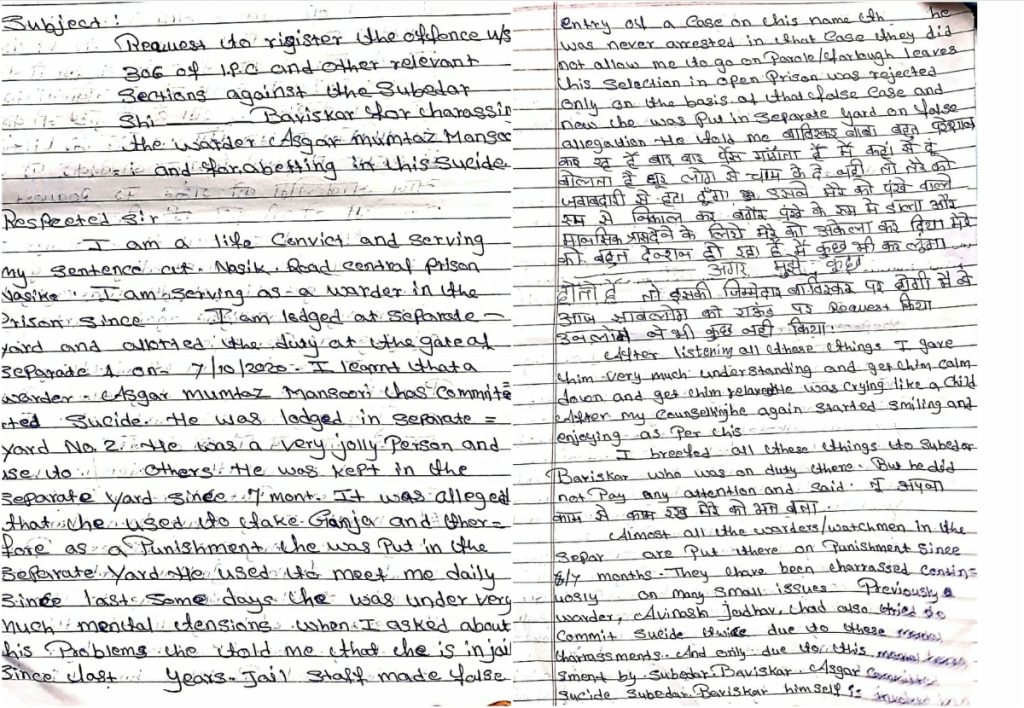 Subject:
Request to rigister the offence u/s
306 of I.P.C and other relevant
Sections against the Subedar
Shi Baviskar for charassin
the warder Asgar mumtaz Mansoo
and for abetting in this Sucide
Respected Sir
I am a life Convict and serving
my sentence at. Nasik. Road central Prison
Nasik. I am serving as a warder in the
Prison since I am lodged at Separate -
yard and allotted the duty at the gate of
Separate 1 on - 7/10/2020 - I learnt that a
warder - Asgar mumtaz Mansoori has Committe=
ted Sucide. He was lodged in separate =
yard No. 2. He was a very jolly Person and
use to Others. He was kept in the
Separate yard Since 7 mont. It was alleged
that he used to take Ganja and ther=
fore as a Punishment he was Put in the
Separate Yard He used to meet me daily
Since last Some days he was under very
much mental tensions. When I asked about
his Problems he told me that he is in jail
Since last Years. Jail Staff made false
entry of a Case on this name he
was never arrested in that Case they did
not allow me to go on Parole/farlough leaves
this Selection in open Prison was rejected
Only on the basis of that false Case and
new he was Put in Separate yard on false
allegation He told me बाविस्कर बाबा बहुत परेशान
कर रहा हैं बार बार पैसा मांगता हैं मैं कहां से दू
बोलता है लोग से काम के दे. नही तो तेरे को
जवाबदारी से हटा दूंगा उसने मेरे को पंखे वाले
रूम से निकाल कर बगैर पंखे के रूम में डाला और
मानसिक त्रास देने के लिये मेरे को अकेला कर दिया मेरे
को बहुत टेन्शन हो रहा हैं मैं कुछ भी कर लूंगा....
अगर मुझे कुछ
होतो हैं तो इसकी जिम्मेदार बाविस्कर पर होगी मैं ने
आज साबलोग को राऊंड पर Request किया
उनलोग ने भी कुछ नही किया.
After listening all these things I gave
him very much understanding and get him calm
down and get him relaxed He was crying like a Child
After my Counselling he again Started Smiling and
enjoying as Per his
I breefed all these things to Subedar
Baviskar who was on duty there. But he did
not Pay any attention and Said. तूं अपना
काम से काम रख मेरे को मत बता.
Almost all the warders/watchmen in the
Separ are Put there on Punishment Since
6/7 months. They have been charrassed contin=
uosly on many Small issues Previously a
warder, Avinash Jadhav, had also tried to
Commit Sucide twice due to these mental
charrassments. And only due to this mental
sment by Subedar. Baviskar. Asgar Committe
Sucide Subedar Baviskar himself is involve in